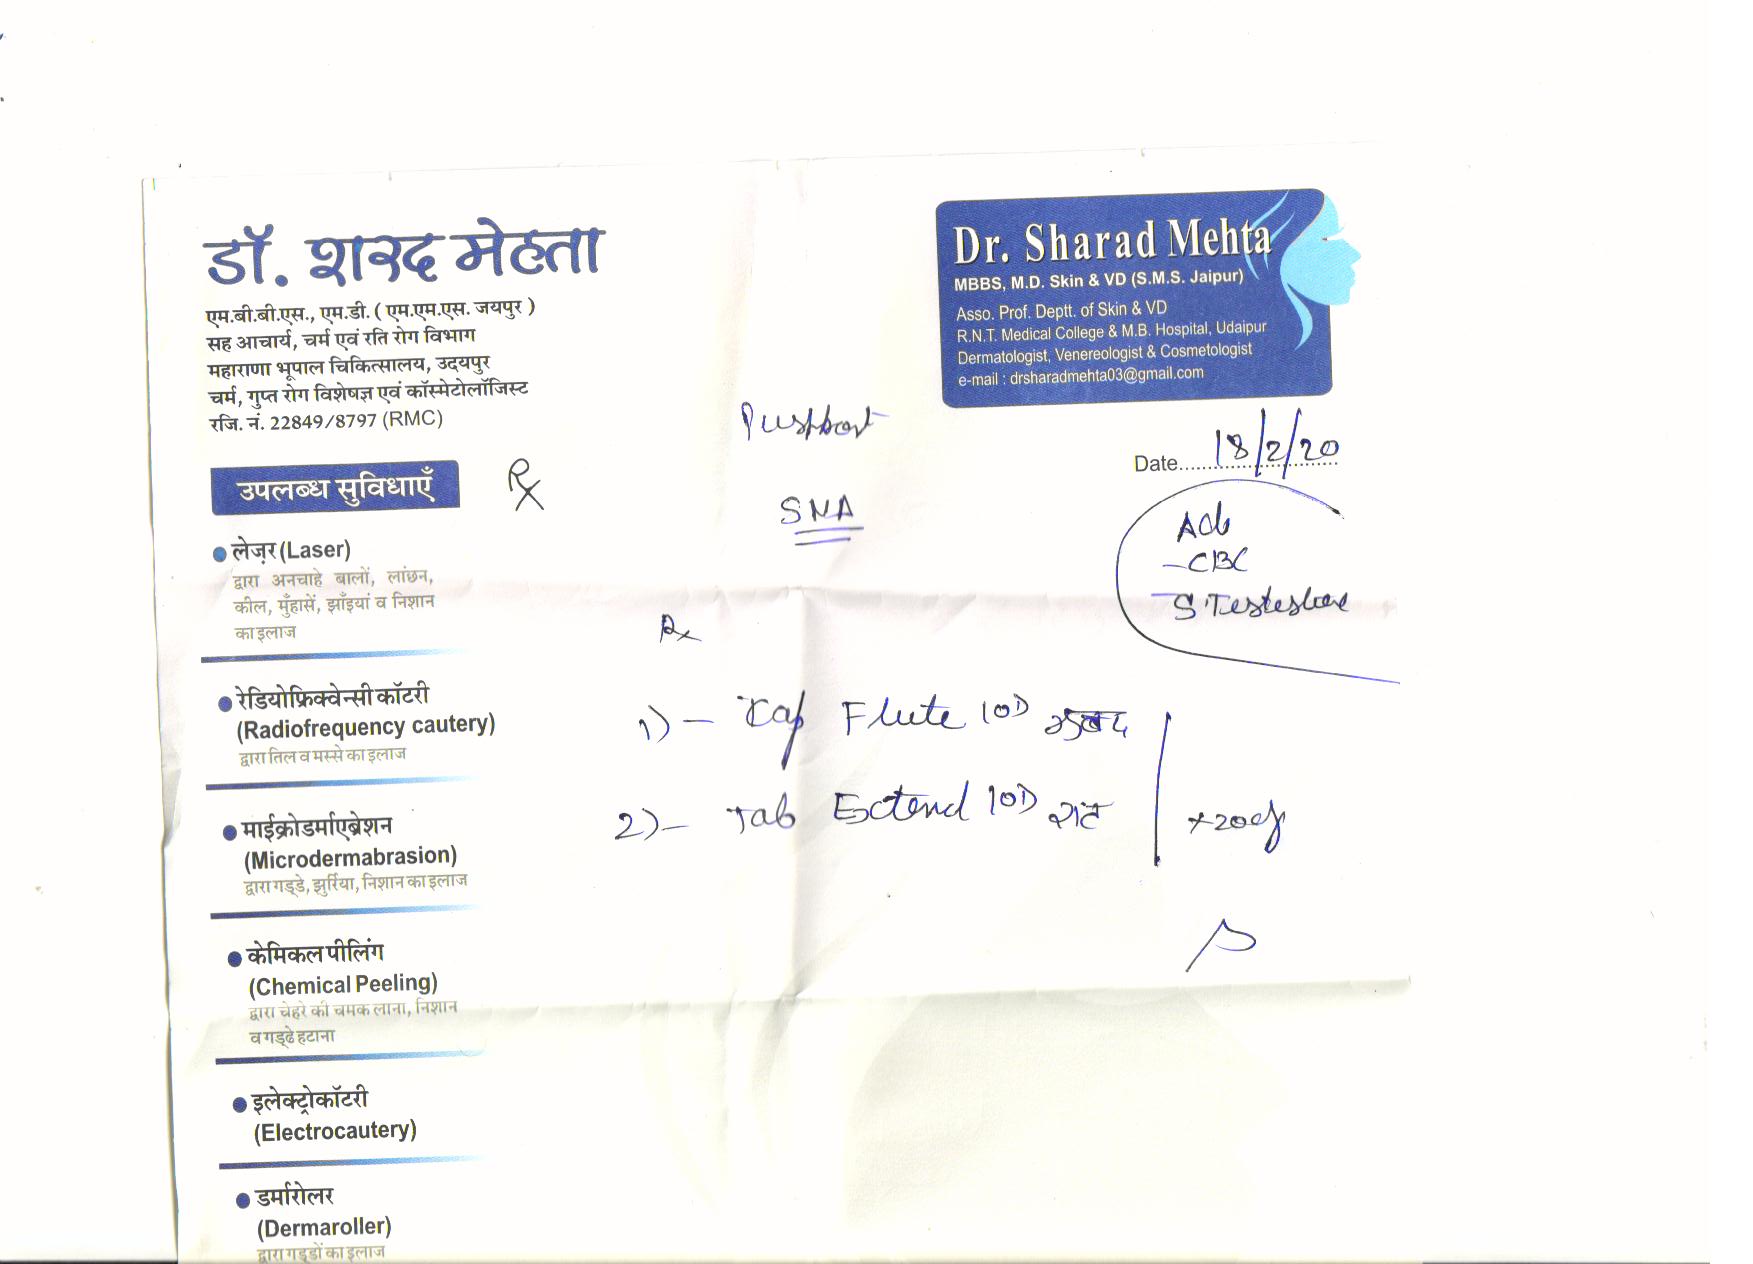 डॉ. शरद मेहता
एम.बी.बी.एस., एम.डी. ( एम.एम.एस. जयपुर )
सह आचार्य, चर्म एवं रति रोग विभाग
महाराणा भूपाल चिकित्सालय, उदयपुर
चर्म, गुप्त रोग विशेषज्ञ एवं कॉस्मेटोलॉजिस्ट
रजि. नं. 22849/8797 (RMC)
Dr. Sharad Mehta
MBBS, M.D. Skin & VD (S.M.S. Jaipur)
Asso. Prof. Deptt. of Skin & VD
R.N.T. Medical College & M.B. Hospital, Udaipur
Dermatologist, Venereologist & Cosmetologist
e-mail : drsharadmehta03@gmail.com
Date...... 18/2/20
SNA
CBC
Rx
1) - Cap Flute 1OD
2) - Tab 1OD रात
उपलब्ध सुविधाएँ
लेज़र (Laser)
द्वारा अनचाहे बालों, लांछन,
कील, मुँहासें, झाँइयां व निशान
का इलाज
रेडियोफ्रिक्वेन्सी कॉटरी
(Radiofrequency cautery)
द्वारा तिल व मस्से का इलाज
माईक्रोडर्माएब्रेशन
(Microdermabrasion)
द्वारा गड्डे, झुर्रिया, निशान का इलाज
केमिकल पीलिंग
(Chemical Peeling)
द्वारा चेहरे की चमक लाना, निशान
व गड्ढे हटाना
इलेक्ट्रोकॉटरी
(Electrocautery)
डर्मारोलर
(Dermaroller)
द्वारा गड्डों का इलाज